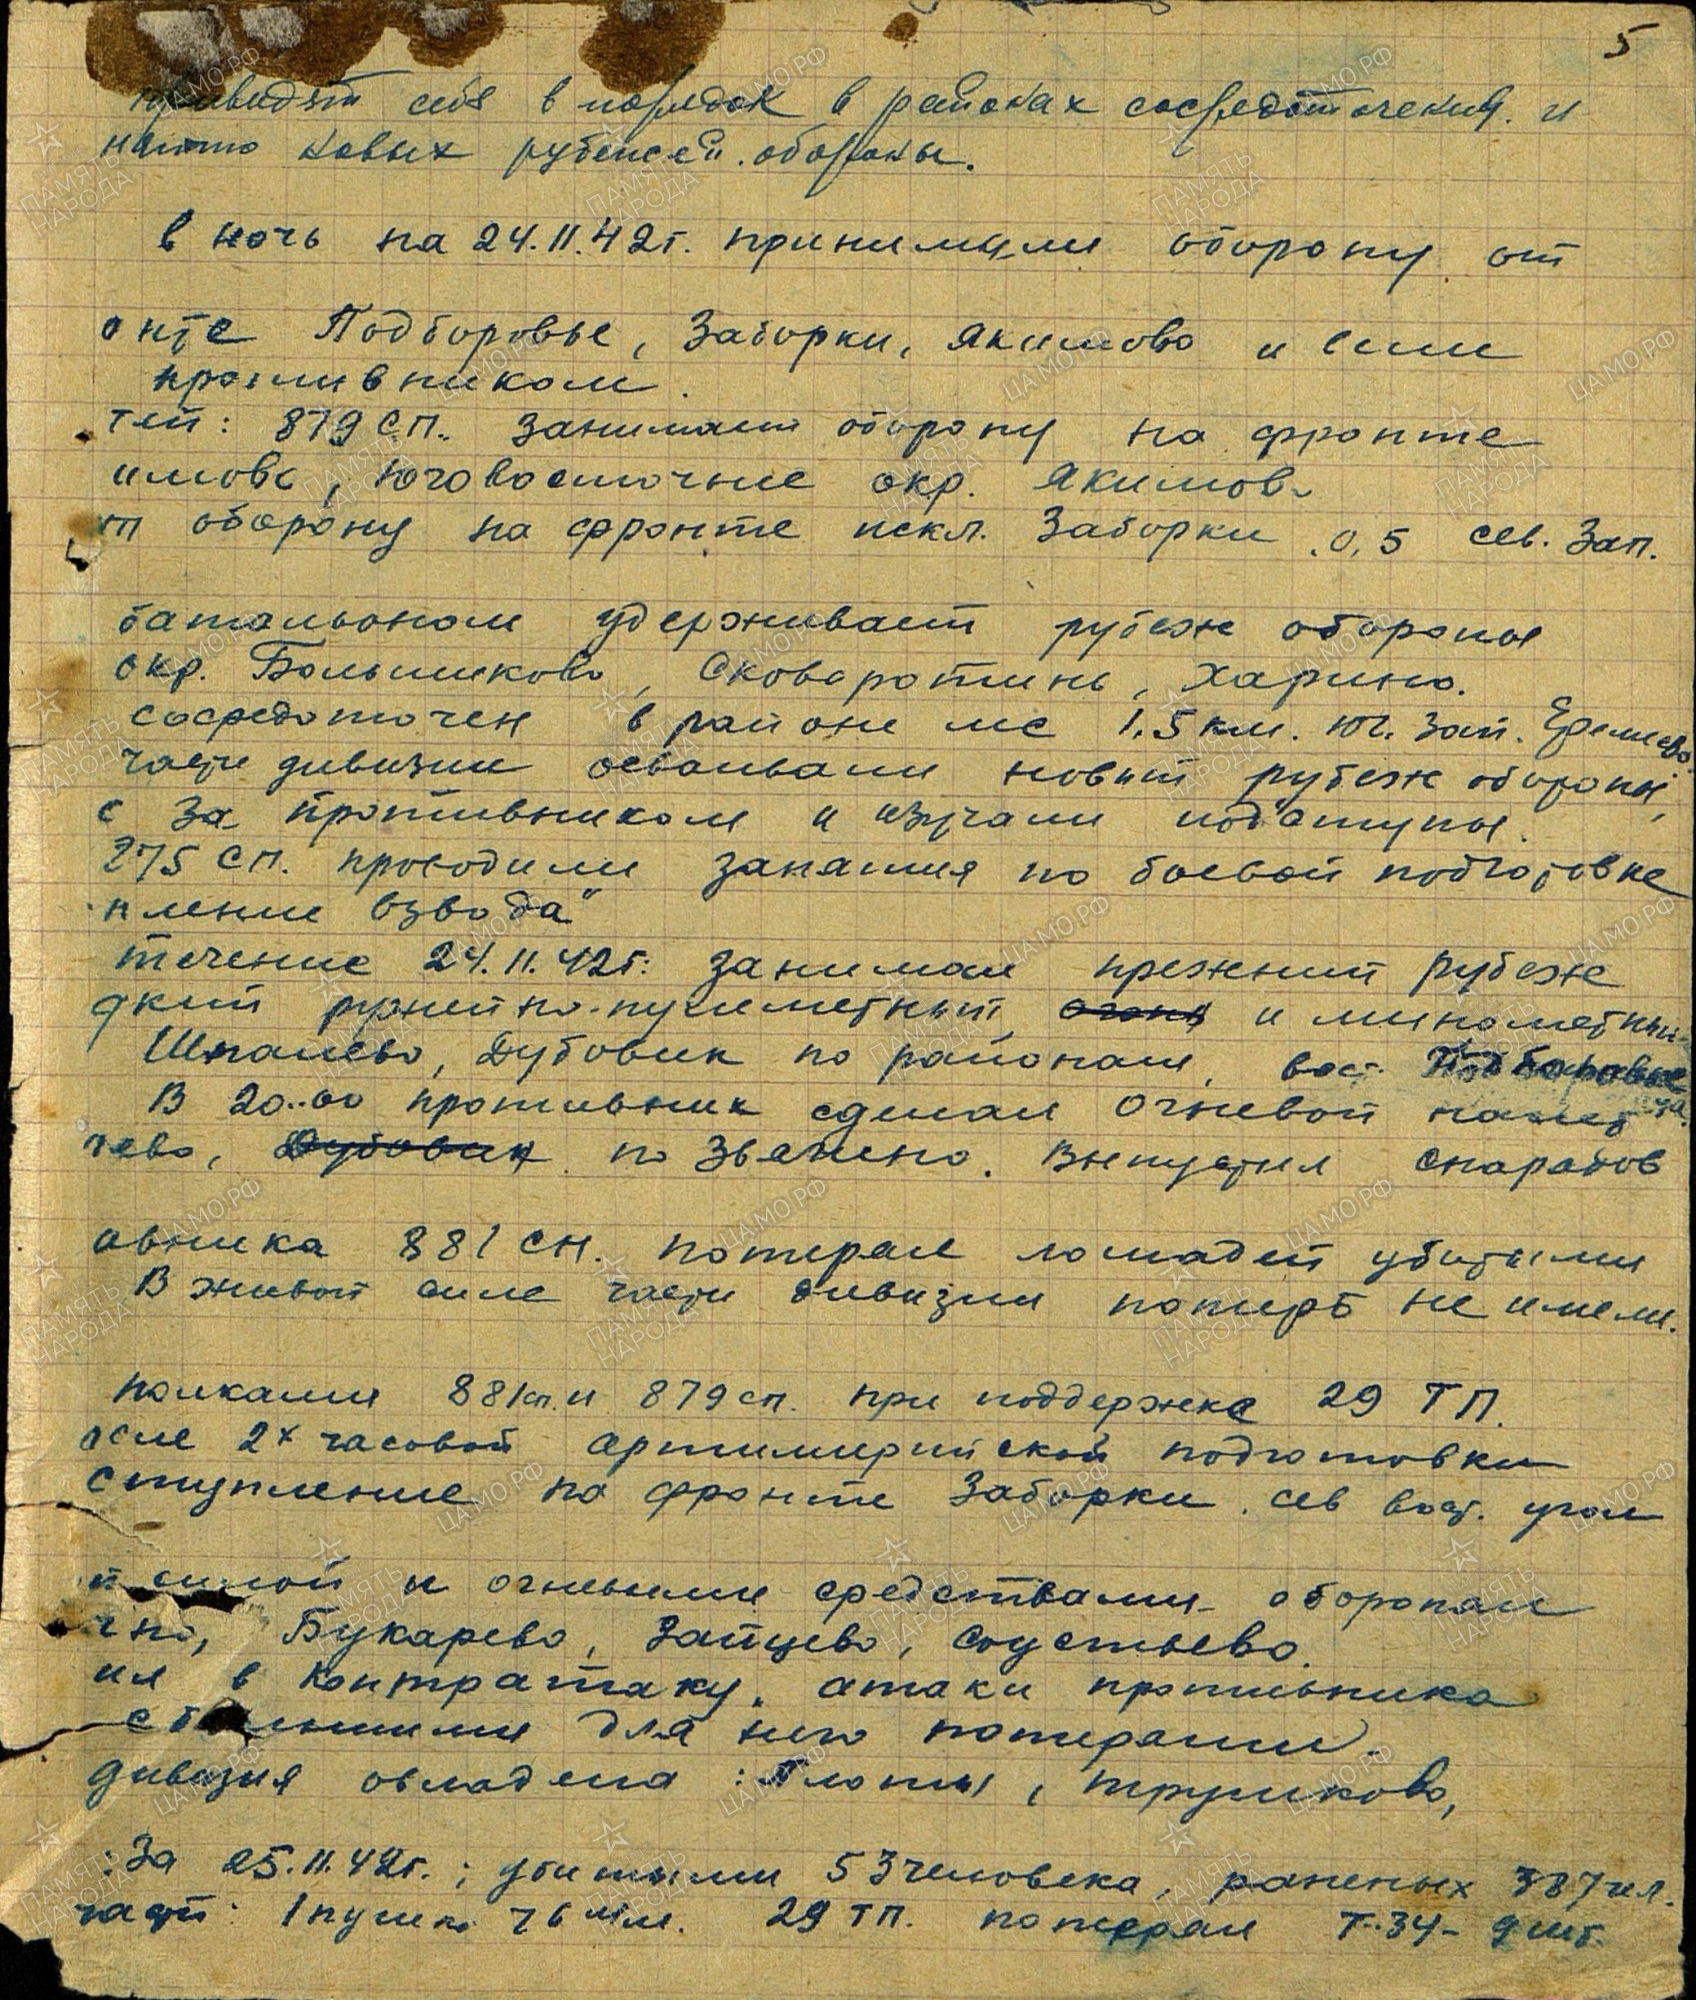 5
приводят себя в порядок в районах сосредоточения и
новых рубежей обороны.
в ночь на 24.11.42г. принимали оборону от
Подборовье, Заборки, Якимово и
противником.
тей: 879 СП. занимает оборону на фронте
имово, юговосточные окр. Якимово
т оборону на фронте искл. Заборки 0,5 сев. зап.
батальоном удерживает рубеж обороны
окр. Большиково, Сковоротынь, Харино.
сосредоточен в районе 1,5 км. юг. зап. Еремеево
части дивизии осваивали новый рубеж обороны,
с за противником и изучали подступы.
275 СП. проводили занятия по боевой подготовке
пление взвода"
течение 24.11.42г. занимал прежний рубеж
дкий ружейно-пулеметный огонь и минометный
Шпалево, Дубовик по районам, вост. Подборовье
В 20.00 противник сделал огневой налет
чево, Дубовик по Звягино. Выпустил снарядов
овника 881 СП. потерял лошадей убитыми
В живой силе части дивизии потерь не имели.
полками 881сп. и 879сп. при поддержке 29 ТП.
осле 2х часовой артиллерийской подготовки
ступление на фронте Заборки сев вост. угол
й силой и огневыми средствами оборонял
Букарево, Зайцево, Соустьево.
ил в контратаку, атаки противника
с большими для него потерями.
дивизия овладела: Плоты, Трушково,
: За 25.11.42г.; убитыми 53 человека, раненых 387 чел.
част: 1 пушка 76 мм. 29 ТП. потерял Т-34- 9 шт.
ПАМЯТЬ НАРОДА
ЦАМО.РФ